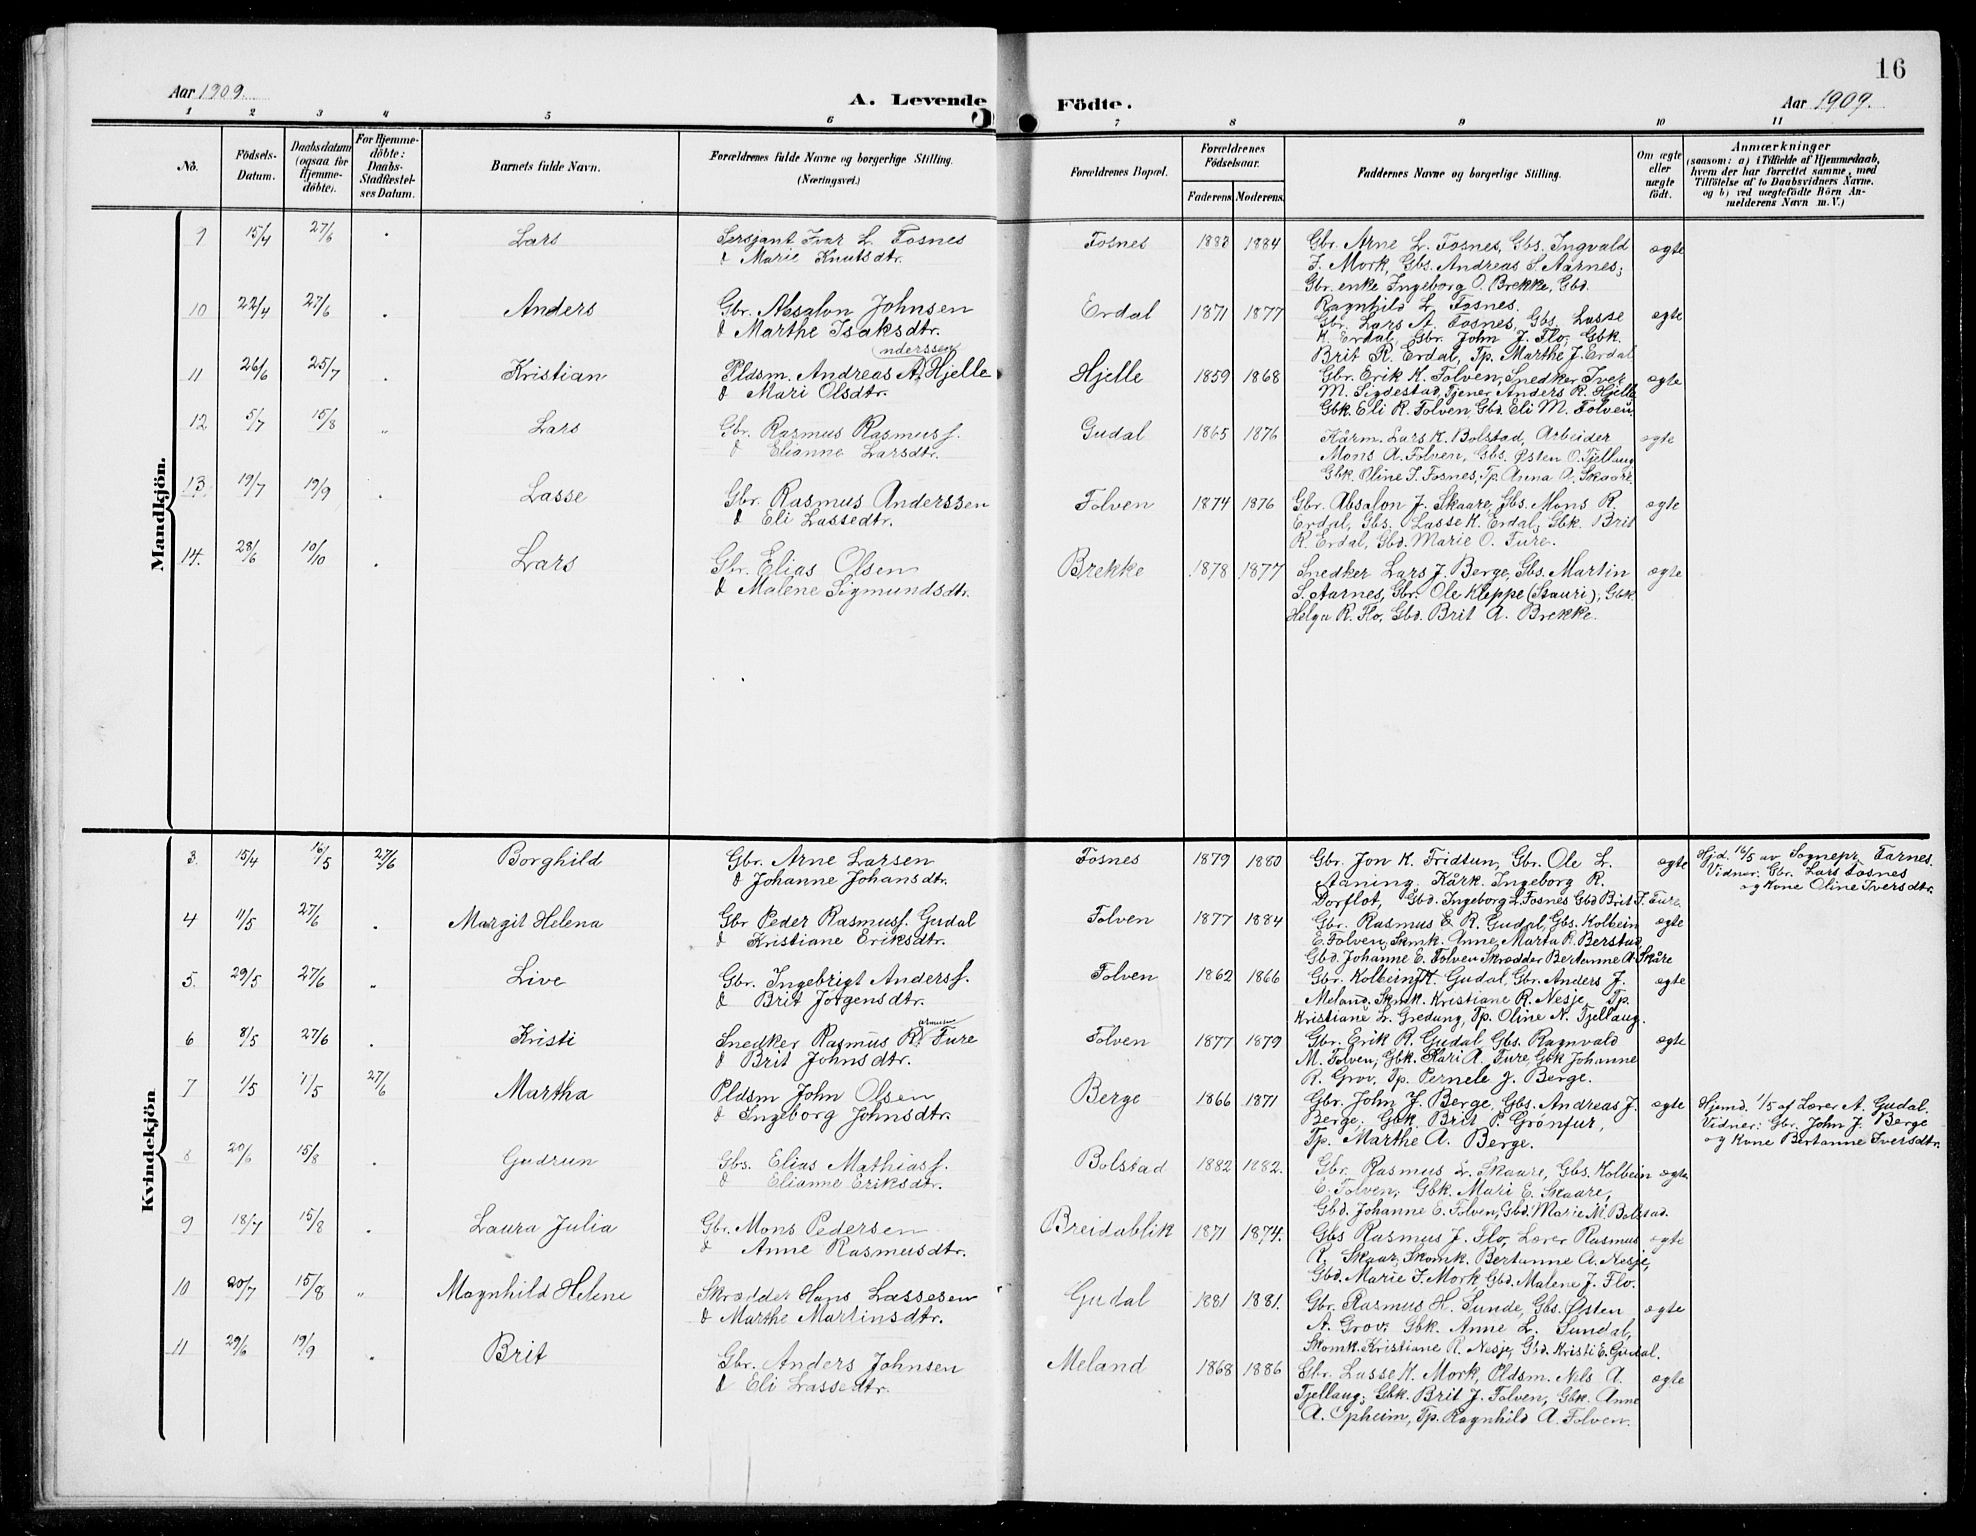 16
Aar 1909.
A. Levende Födte.
Aar 1909.
1 2 3 4 5 6 7 8 9 10 11
No.
Födsels-
Datum.
Daabsdatum
(ogsaa for
Hjemme-
döbte).
For Hjemme-
döbte:
Daabs-
Stadfæstel-
ses Datum.
Barnets fulde Navn.
Forældrenes fulde Navne og borgerlige Stilling.
(Næringsvei.)
Forældrenes Bopæl.
Forældrenes
Födselsaar.
Faderens Moderens
Faddernes Navne og borgerlige Stilling.
Om ægte
eller
uægte
födt.
Anmærkninger
(saasom: a) i Tilfælde af Hjemmedaab,
hvem der har forrettet samme, med
Tilföielse af to Daabsvidners Navne.
og b) ved uægtefödte Börn An-
melderens Navn m. V.)
Mandkjön.
9 15/4 27/6 Lars Sersjant Ivar L. Fosnes Fosnes 1883 1884 Gbr. Arne L. Fosnes, Gbs. Ingvald ægte
& Marie Knutsdtr. J. Mork, Gbs. Andreas S. Aarnes;
Gbr. enke Ingeborg O. Brekke, Gbd.
Ragnhild L. Fosnes.
10 22/4 27/6 Anders Gbr. Absalon Johnsen Erdal 1871 1877 Gbr. Lars A. Fosnes, Gbs. Lasse ægte
& Marthe Isaksdtr. K. Erdal, Gbr. John J. Flo, Gbk.
Brit R. Erdal, Tp. Marthe J. Erdal
nderssen
11 26/6 25/7 Kristian Pldsm. Andreas A. Hjelle Hjelle 1859 1868 Gbr. Erik K. Folven, Snedker Iver ægte
& Mari Olsdtr. M. Sigdestad, Tjener Anders R. Hjelle
Gbk. Eli R. Folven, Gbd. Eli M. Folven
12 5/7 15/8 " Lars Gbr. Rasmus Rasmusf. Gudal 1865 1876 Kårm. Lars K. Bolstad, Arbeider ægte
& Elianne Larsdtr. Mons A. Folven, Gbs. Østen O. Tjellaug
Gbk. Oline I. Fosnes, Tp. Anna A. Skaare
13 19/7 19/9 Lasse Gbr. Rasmus Anderssen Folven 1874 1876 Gbr. Absalon J. Skaare, Gbs. Mons R. ægte
& Eli Lassedtr. Erdal, Gbs. Lasse K. Erdal, Gbk. Brit
R. Erdal, Gbd. Marie O. Fure.
14. 28/6 10/10 Lars Gbr. Elias Olsen Brekke 1878 1877 Snedker Lars J. Berge, Gbs. Martin ægte
& Malene Sigmundsdtr. S. Aarnes, Gbr. Ole Kleppe (Stauri), Gbk.
Helga R. Flo, Gbd. Brit A. Brekke.
Kvindekjön
3. 15/4 16/5 27/6 Borghild Gbr. Arne Larsen Fosnes 1879 1880 Gbr. Jon K. Fridtun, Gbr. Ole L. ægte Hjd. 16/5 av Sognepr. Farnes.
& Johanne Johansdtr. Aaning, Kårk. Ingeborg R. Vidner: Gbr. Lars Fosnes
Dorflot, Gbd. Ingeborg L. Fosnes Gbd Brit J. Fure. og Kone Oline Iversdtr.
4 11/5 27/6 Margit Helena Gbr Peder Rasmusf. Gudal Folven 1877 1884 Gbr. Rasmus E R. Gudal, Gbs. Kolbein ægte
& Kristiane Eriksdtr. E. Folven, Skmk. Anne Marta R. Berstad,
Gbd. Johanne E. Folven Skrædder Bertanne A. Skåre
5. 29/5 27/6 " Live Gbr. Ingebrigt Andersf. Folven 1862 1866 Gbr. Kolbein K. Gudal, Gbr. Anders J. ægte
& Brit Jorgensdtr. Meland, Skmk. Kristiane R. Nesje, Tp.
Kristiane L. Gredung, Tp. Oline N. Tjellaug.
asmussen
6 8/5 27/6 Kristi Snedker Rasmus R. Fure Folven 1877 1879 Gbr. Erik R. Gudal Gbs. Ragnvald ægte
& Brit Johnsdtr. M. Folven, Gbk. Kari A. Fure, Gbk Johanne
R. Grov, Tp. Pernele J. Berge.
7 1/5 1/5 27/6 Martha Pldsm John Olsen Berge 1866 1871 Gbr. John J. Berge, Gbs. Andreas J. ægte Hjemd. 1/5 af Lærer A. Gudal.
& Ingeborg Johnsdtr. Berge, Gbk. Brit P. Grønfur, Vidner: Gbr. John J. Berge
Tp. Marthe A. Berge. og Kone Bertanne Iversdtr.
8 20/6 15/8 Gudrun Gbs. Elias Mathiasf. Bolstad 1882 1882. Gbr. Rasmus L. Skaare, Gbs. Kolbein ægte
& Elianne Eriksdtr. E. Folven, Gbk. Mari E. Skaare,
Gbd. Johanne E. Folven, Gbd. Marie M. Bolstad.
9 18/7 15/8 Laura Julia Gbr. Mons Pedersen Breidablik 1871 1874. Gbs Rasmus J. Flo, Lærer Rasmus ægte
& Anne Rasmusdtr. R. Skaar, Skomk. Bertanne A. Nesje,
Gbd. Marie J. Mork, Gbd. Malene J. Flo.
10 20/7 15/8 " Magnhild Helene Skrædder Hans Lassesen Gudal 1881 1881. Gbr. Rasmus H. Sunde, Gbs. Østen ægte
& Marthe Martinsdtr. A. Grov, Gbk. Anne L. Sundal,
Skomk. Kristiane R. Nesje, Gbd. Kristi E. Gudal.
11 29/6 19/9 Brit Gbr. Anders Johnsen Meland 1868 1886 Gbr. Lasse K. Mork, Pldsm. Nils A. ægte
& Eli Lassedtr. Tjellaug, Gbk. Brit J. Folven, Gbk. Anne
A. Opheim, Tp. Ragnhild A. Folven.